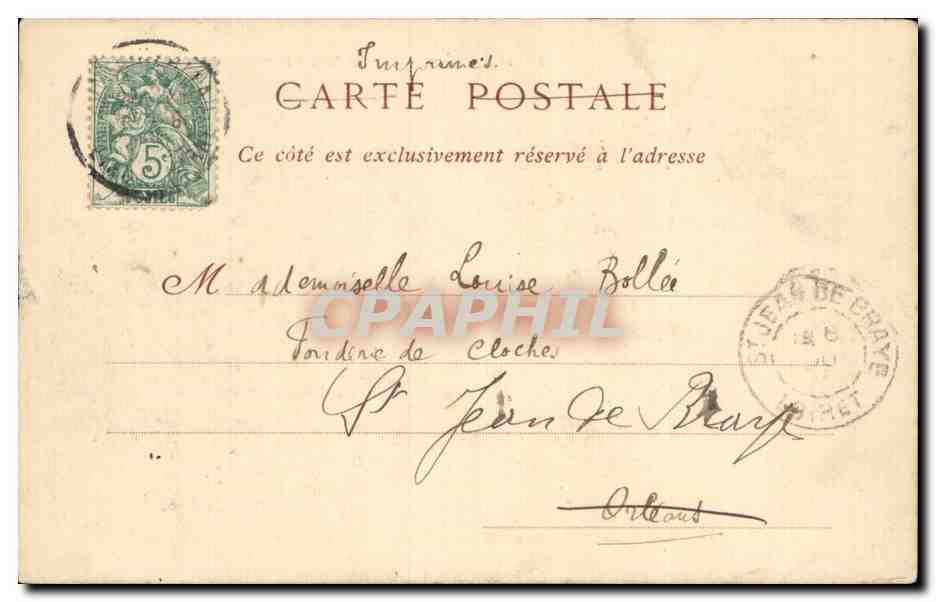 Imprimés.
CARTE POSTALE
Ce côté est exclusivement réservé à l'adresse
5c
POSTES
Mademoiselle Louise Bollée
CPAPHIL
Fonderie de Cloches
St JEAN DE BRAYE
LOIRET
St Jean de Braye
Orléans